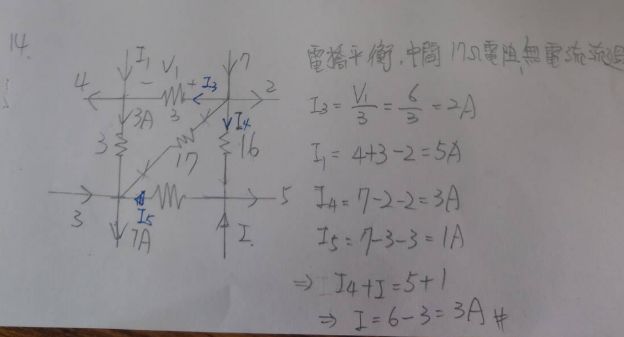 14.
I₁ V₁ 7
4 - + I₃ 2
3
3A I₄
3 17 16
3 I₅ 5
7A I
電橋平衡,中間17Ω電阻無電流流過
I₃=V₁/3=6/3=2A
I₁=4+3-2=5A
I₄=7-2-2=3A
I₅=7-3-3=1A
⇒ I₄+I=5+1
⇒ I=6-3=3A #